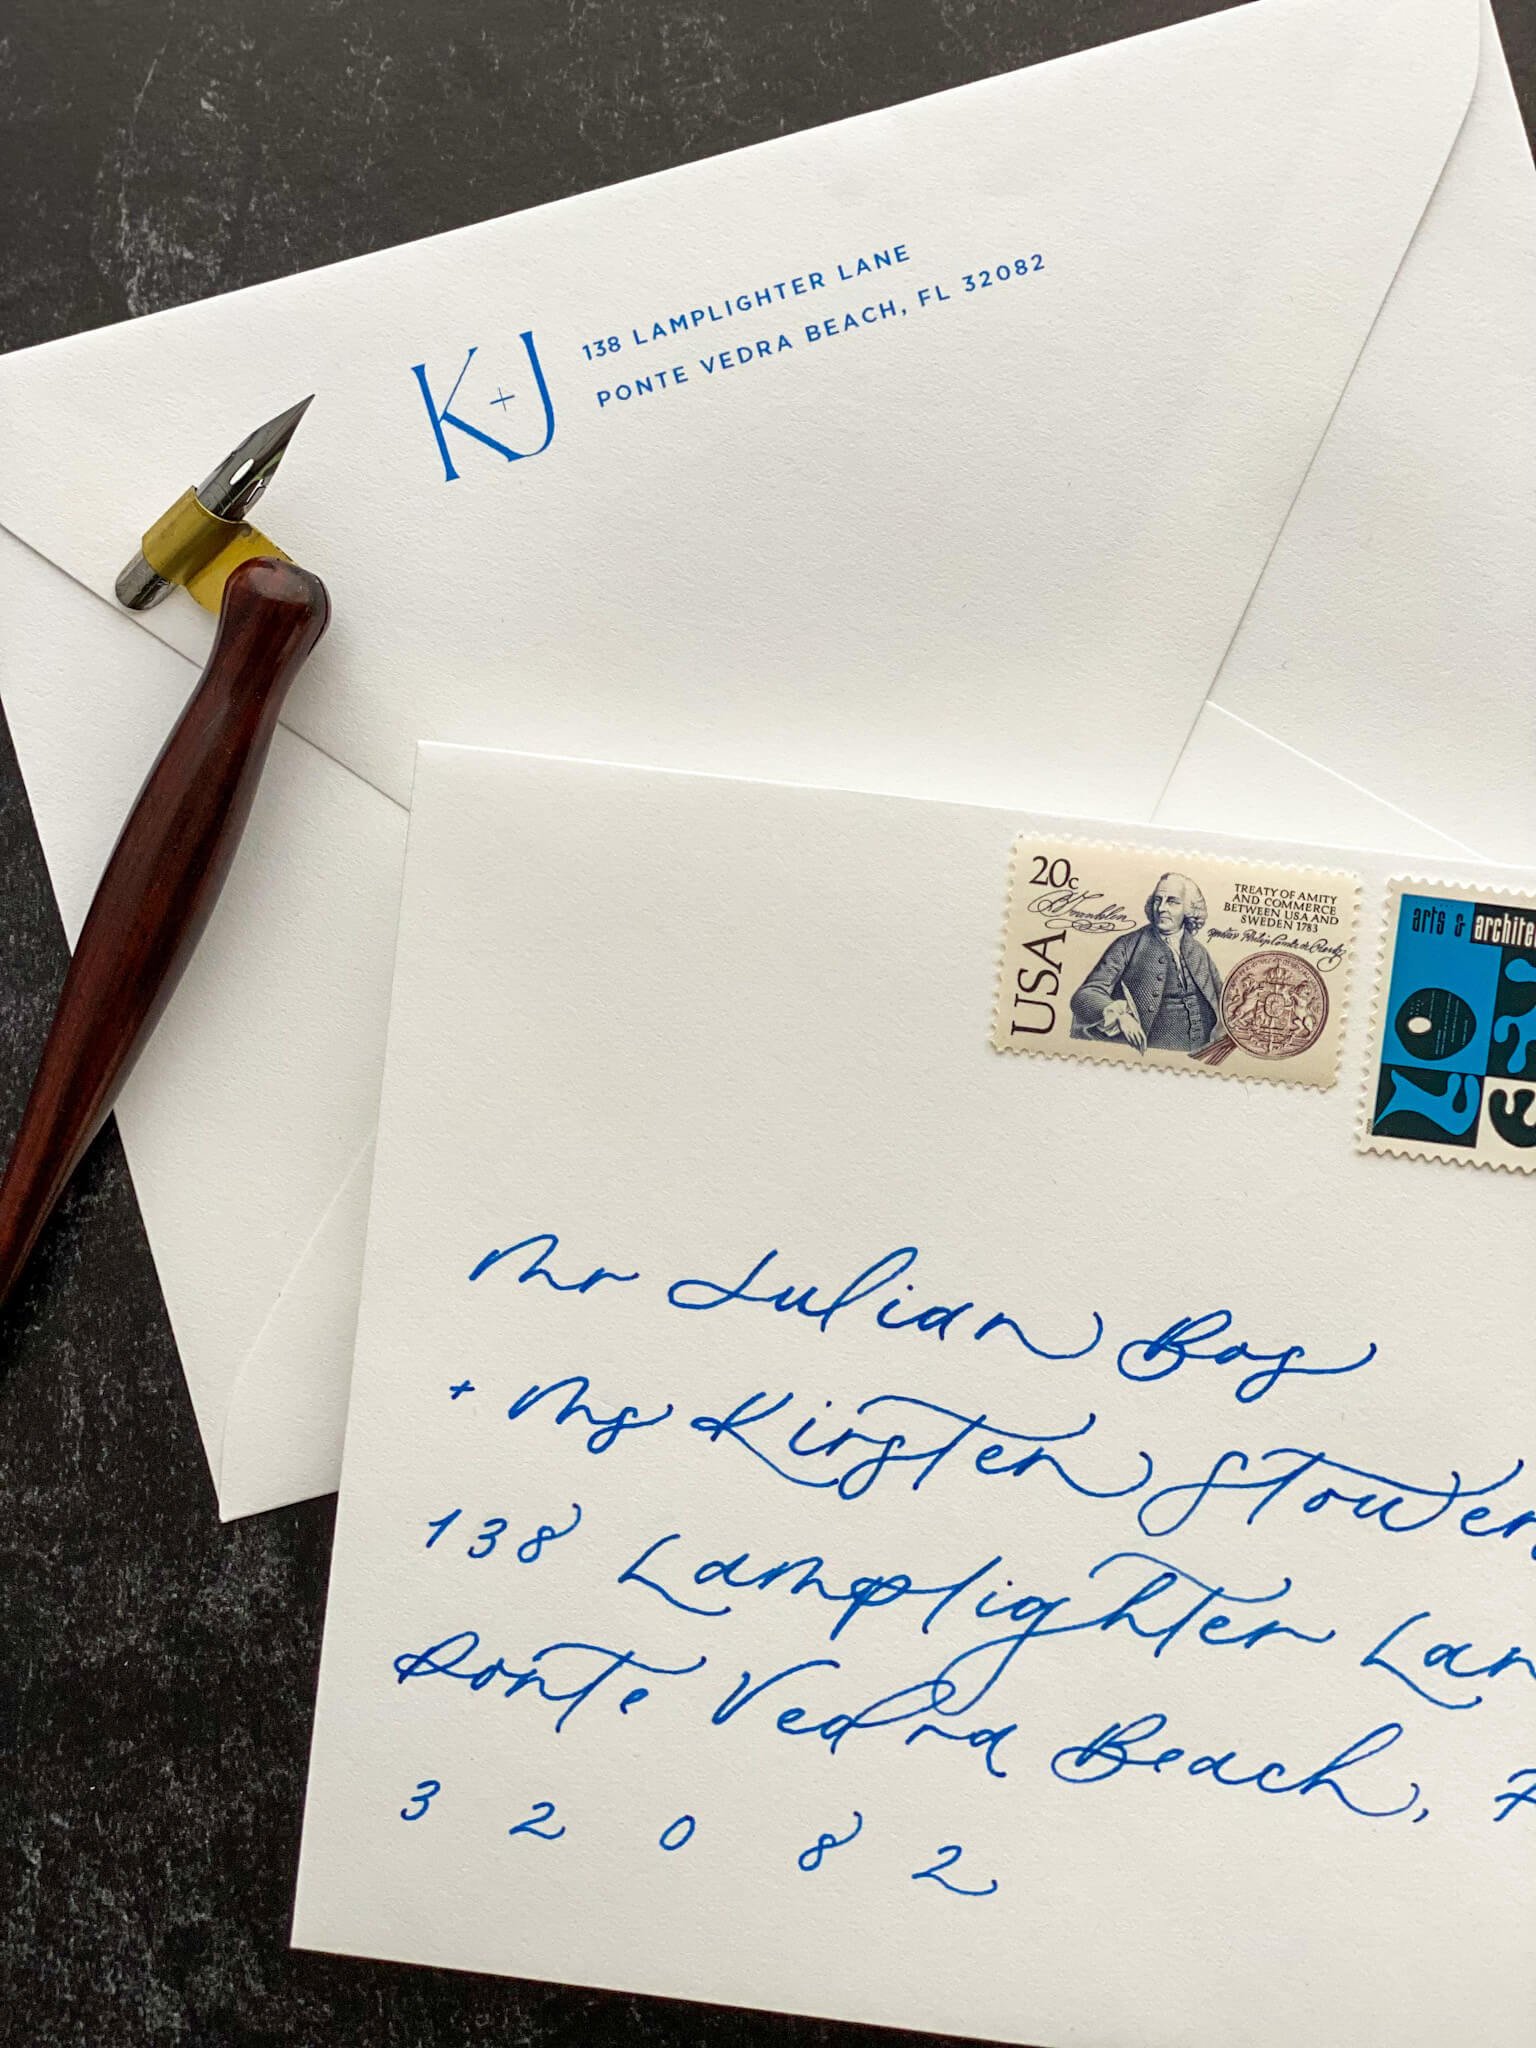 K+J
138 LAMPLIGHTER LANE
PONTE VEDRA BEACH, FL 32082
20c
B Franklin
USA
TREATY OF AMITY
AND COMMERCE
BETWEEN USA AND
SWEDEN 1783
arts &
Mr Julian Bos
+ Ms Kirsten
138 Lamplighter
Ponte Vedra Beach,
3 2 0 8 2